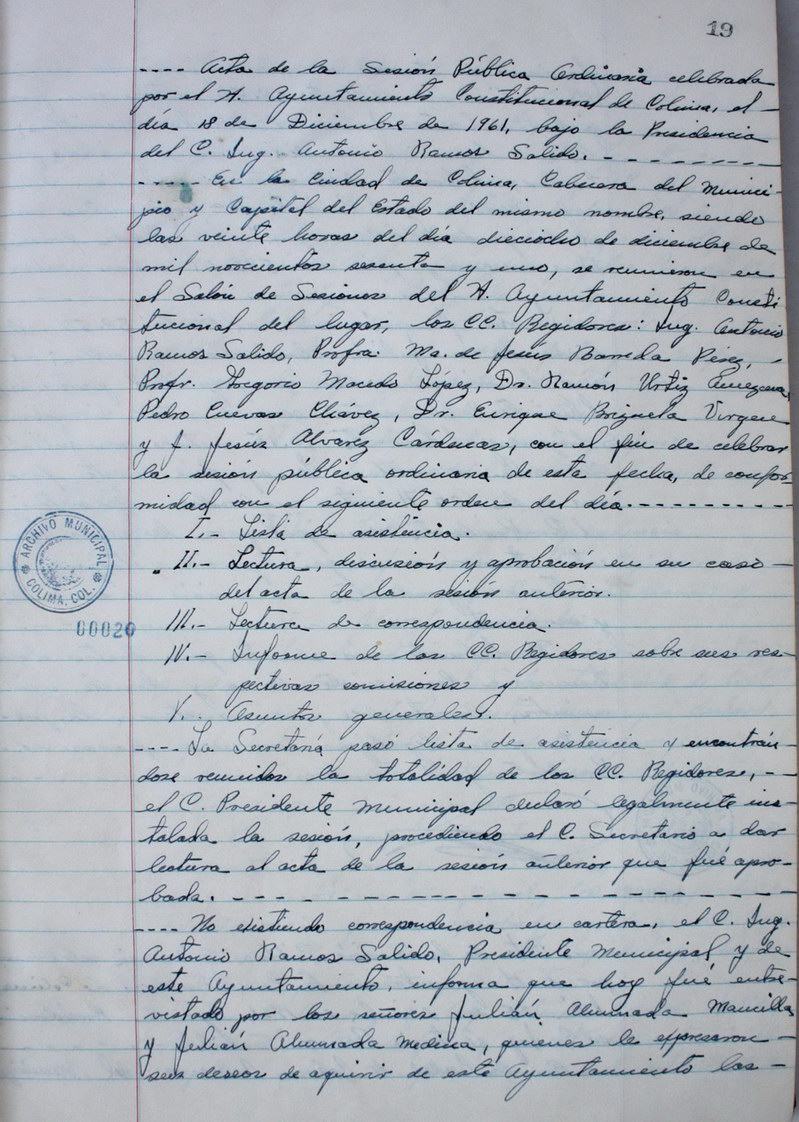 19
---- Acta de la Sesión Pública Ordinaria celebrada
por el H. Ayuntamiento Constitucional de Colima, el -
día 18 de Diciembre de 1961, bajo la Presidencia
del C. Ing. Antonio Ramos Salido. - - - - - - - -
---- En la Ciudad de Colima, Cabecera del Munici-
pio y Capital del Estado del mismo nombre, siendo
las veinte horas del día dieciocho de diciembre de
mil novecientos sesenta y uno, se reunieron en
el Salón de Sesiones del H. Ayuntamiento Consti
tucional del lugar, los CC. Regidores: Ing. Antonio
Ramos Salido, Profra. Ma. de Jesús Barreda Pérez, -
Profr. Gregorio Macedo López, Dr. Ramón Urtiz Amezcua,
Pedro Cuevas Chávez, Dr. Enrique Brizuela Virgen
y J. Jesús Alvarez Cárdenas, con el fin de celebrar
la sesión pública ordinaria de esta fecha, de confor-
midad con el siguiente orden del día. - - - - - - - - - -
I.- Lista de asistencia.
II.- Lectura, discusión y aprobación en su caso -
del acta de la sesión anterior.
III.- Lectura de correspondencia.
IV.- Informe de los CC. Regidores sobre sus res-
pectivas comisiones y
V. Asuntos generales.
---- La Secretaría pasó lista de asistencia y encontrán-
dose reunidos la totalidad de los CC. Regidores, -
el C. Presidente Municipal declaró legalmente ins-
talada la sesión, procediendo el C. Secretario a dar
lectura al acta de la sesión anterior que fué apro-
bada. - - - - - - - - - - - - - - - - - -
---- No existiendo correspondencia en cartera, el C. Ing.
Antonio Ramos Salido, Presidente Municipal y de
este Ayuntamiento, informa que hoy fué entre-
vistado por los señores Julián Ahumada Mancilla
y Julián Ahumada Medina, quienes le expresaron -
sus deseos de aquirir de este Ayuntamiento los -
ARCHIVO MUNICIPAL
COLIMA, COL.
00020